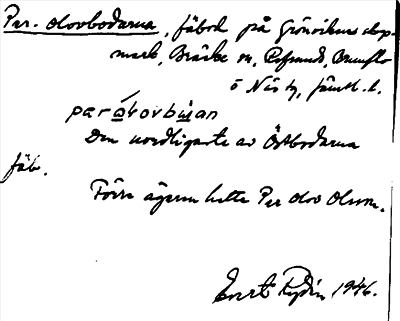 Per-olovbodarna, fäbod på Grönvikens skog-
mark, Bräcke sn, Refsunds, Brunflo
o Näs tg, Jämtl. l.
parólovbùan
Den nordligaste av Östbodarna
fäb.
Förre ägaren hette Per Olov Olsson.
Evert Rydin 1946.